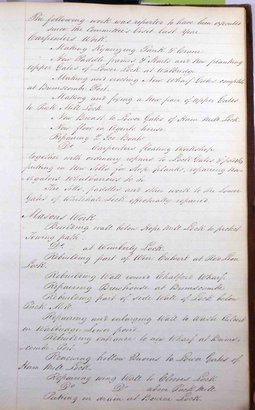 The following work was reported to have been executed
since the Committee's Visit last Year
Carpenters Work.
Making Kyanizing Tank & Crane.
New Paddle Frames & and New planking
Upper Gates of Lower Lock at Wallbridge
Making and erecting New Wharf Gates complete
at Brimscombe Port.
Making and fixing a New pair of Upper Gates
to Rack Mill Lock.
New Breast to Lower Gates of Ham Mill Lock.
New floor in Agents house.
Repairing 2 Ice Boats
Do Carpenters floating Workshop
together with ordinary repairs to Lock Gates & paddles
putting on New Sills for Stop planks, repairing
The Sills, paddles and other work to the Lower
Gates of Whitehall Lock effectually repaired
Masons Work.
Building wall below Hope Mill Lock to protect
Towing path.
Do at Wimberly Lock.
Rebuilding part of Weir Culvert at
Lock.
Rebuilding Wall round Chalford Wharf.
Repairing House at Brimscombe.
Rebuilding part of side Wall of Lock below
Puck Mill.
Repairing and enlarging Wall to Waste Culvert
in Wallbridge Lower pond.
Rebuilding entrance to new Wharf at Brims-
combe Port.
Renewing hollow Quoins to Lower Gates of
Ham Mill Lock.
Repairing wing Wall to Lock
Do Do above Puck Mill.
Putting in drain at Bourne Lock.